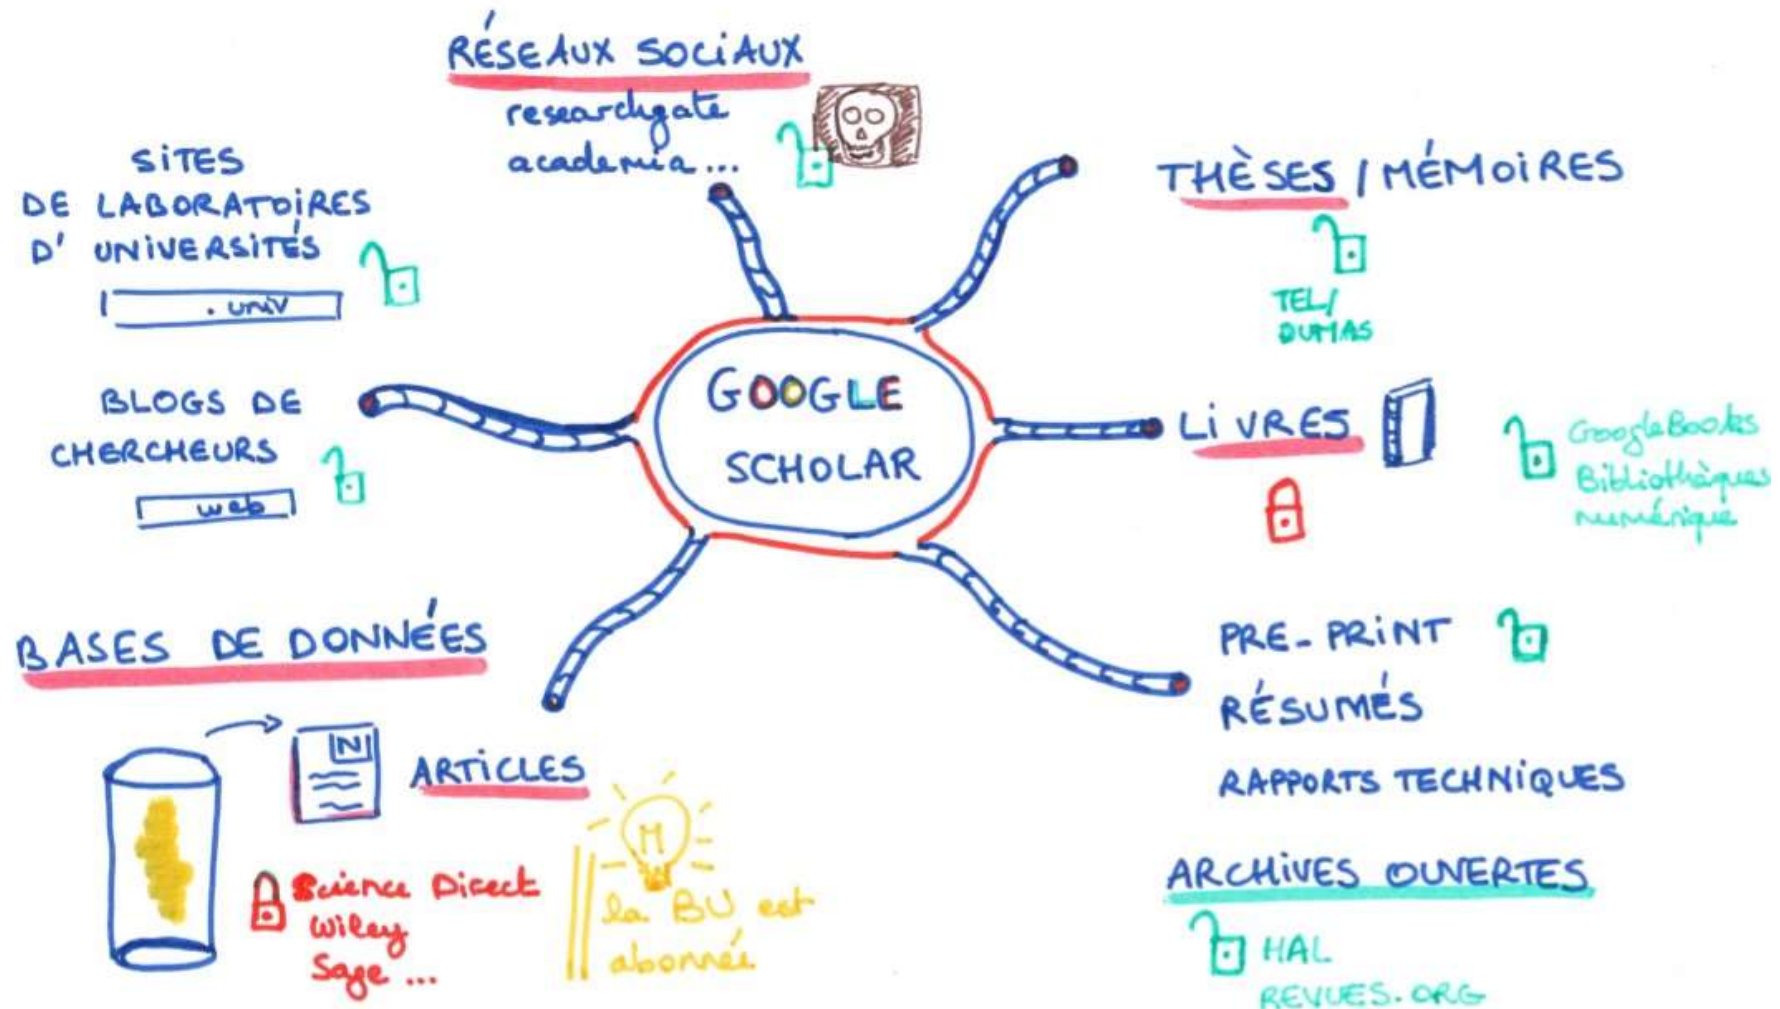 RÉSEAUX SOCIAUX
researchgate
academia...
SITES
DE LABORATOIRES
D' UNIVERSITÉS
.univ
BLOGS DE
CHERCHEURS
web
GOOGLE
SCHOLAR
THÈSES / MÉMOIRES
TEL/
DUMAS
LIVRES
GoogleBooks
Bibliothèques
numérique
PRE-PRINT
RÉSUMÉS
RAPPORTS TECHNIQUES
ARCHIVES OUVERTES
HAL
REVUES.ORG
BASES DE DONNÉES
N
ARTICLES
Science Direct
Wiley
Sage ...
M
la BU est
abonnée